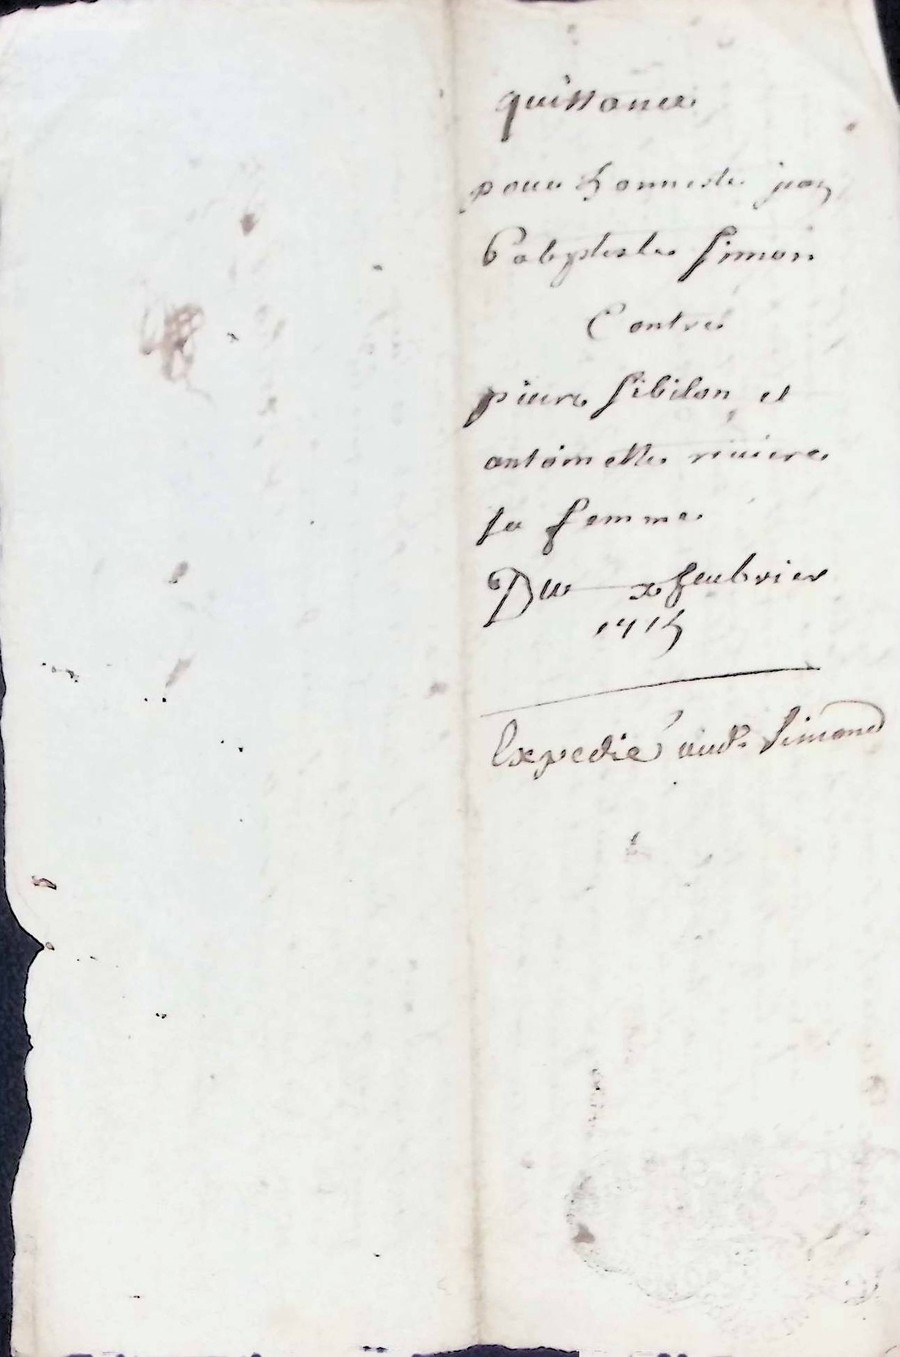 quittance
pour honneste jean
Babptiste simon
Contre
pierre sibilon et
antoinette riviere
sa femme
Du x feubrier
1715
Expedié aud. Simond